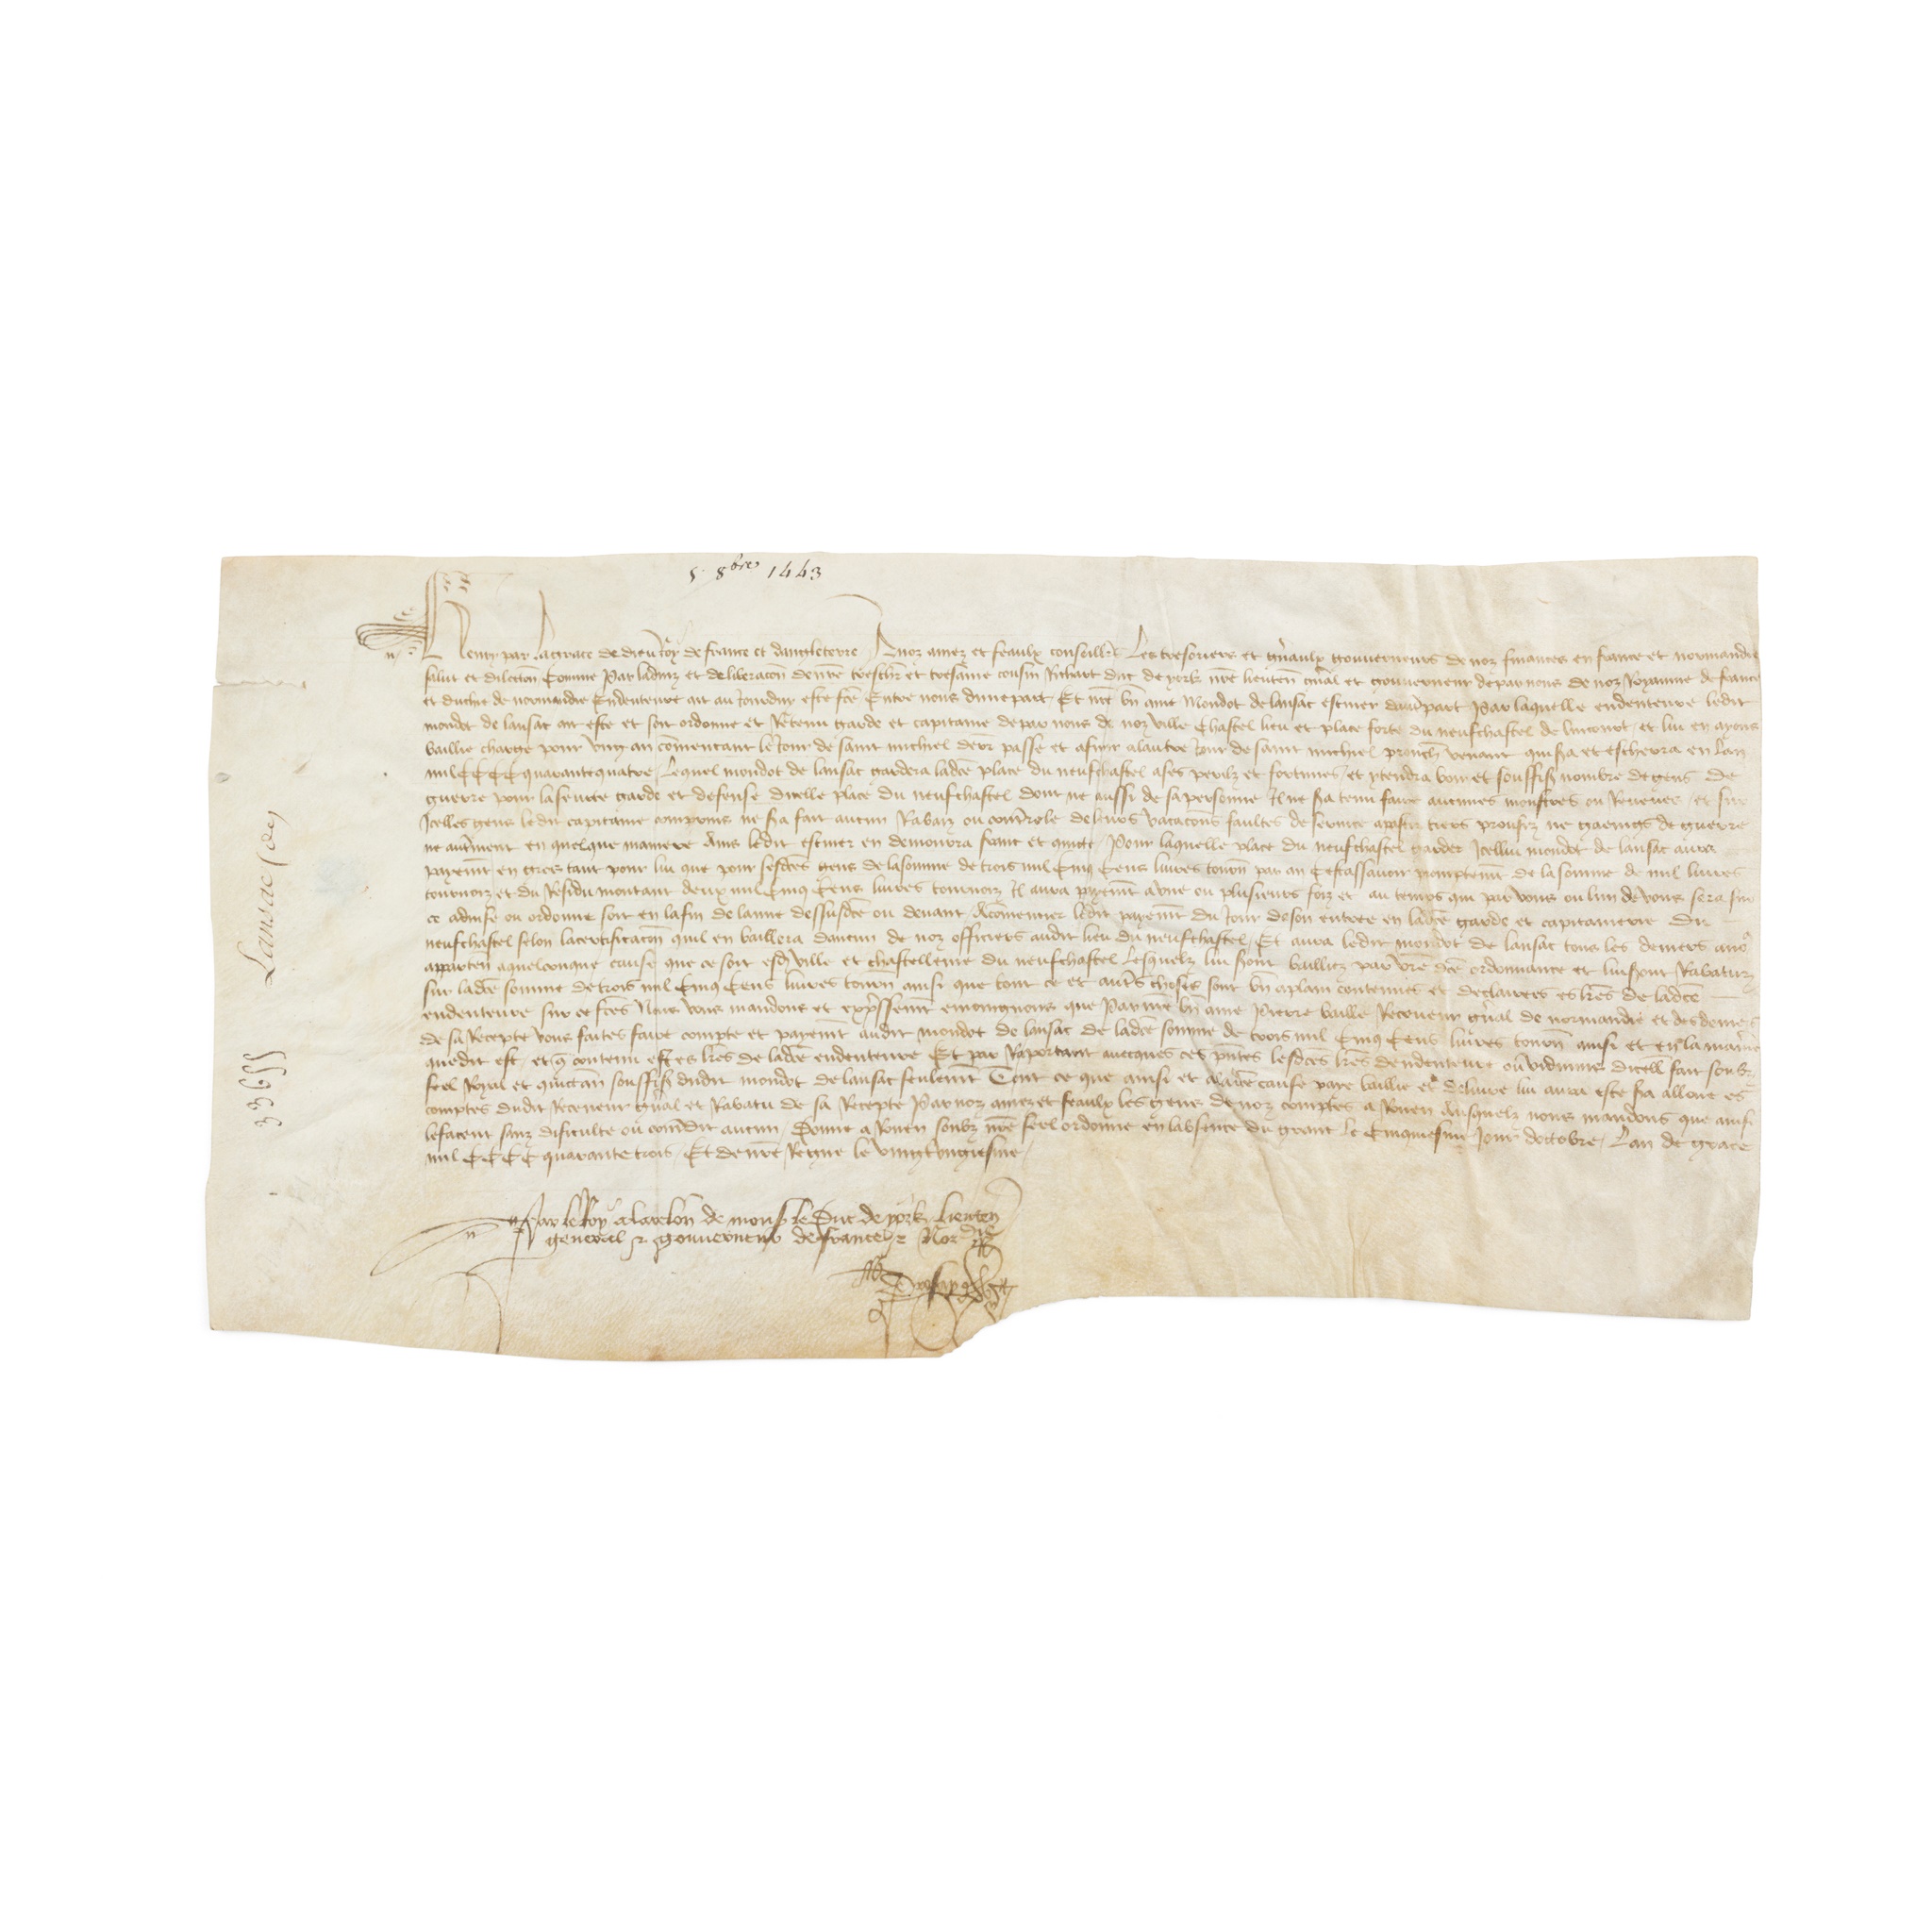 5 8bre 1443
Henry par la grace de dieu Roy de france et dangleterre A noz amez et feaulx conseillers Les tresoriers et gn̄aulx gouverneurs de noz finances en france et normandie
salut et dilection Comme Par ladviz et deliberacōn de nr̄e treschr̄ et tresame cousin Richart duc de york nr̄e lieuten̄ gn̄al et gouverneur de par nous de noz Royaume de france
et duchie de normandie Endenteure ait au Jourduy este fcē Entre nous dune part Et nr̄e bn̄ ame Mondot de lansac escuier dautre part Par laquelle endenteure ledit
mondot de lansac ait este et soit ordonne et Retenu garde et capitaine de par nous de noz ville Chastel lieu et place forte du neufchastel de lincourt et lui en ayons
baillie charge pour ung an cōmencant le Jour de saint michiel derr̄ passe et afinir a lautre Jour de saint michiel prouch̄ venant qui sa et eschevra en lan
mil CCCC quarante quatre / Lequel mondot de lansac gardera ladcē place du neufchastel a ses perilz et fortunes et y tendra bon et souffisant nombre de gens de
guerre pour la seurte garde et defense dicelle place du neufchastel dont ne aussi de sa personne Il ne sa tenu faire aucunes monstres ou Reveues et sur
Icelles gens ledit capitaine comprins ne sa fait aucun Rabaiz ou contrerole de leurs vacacōns faultes de service apastiz tiers prouffiz ne gaengs de guerre
ne autr̄ment en quelque maniere Ains ledit escuier en demourra franc et quicte / Pour laquelle place du neufchastel garder Icellui mondot de lansac aura
payem̄t en gres tant pour lui que pour sesdcēs gens de la somme de trois mil Cinq Cens livres tourn̄ par an Cestassavoir promptemt de la somme de mil livres
tournoiz et du Residu montant deux mil Cinq Cens livres tournoiz Il aura payem̄t a une ou plusieurs foiz et au temps qui par vous ou lun de vous sera sur
ce advise ou ordonne soit en la fin de lannee dessusdcē ou devant A cōmencier ledit payem̄t du Jour de son entree en ladcē garde et capitainerie du
neufchastel selon la certificacōn quil en baillera daucun de noz officiers audit lieu du neufchastel / Et aura ledit mondot de lansac tous les deniers a nō
apparten̄ a quelconque cause que ce soit esd ville et chastellenie du neufchastel Lesquelz lui sont bailliez par vr̄e dcē ordonnance et lui sont Rabatuz
sur ladcē somme de trois mil Cinq Cens livres tourn̄ ainsi que tout ce et autr̄s choses sont bn̄ a plain contenues et declairees es lr̄es de ladcē
endenteure sur ce fcēs Nous vous mandons et expr̄ssem̄t enioignons que Par nr̄e bn̄ ame Pierre baille Receveur gn̄al de normandie et des deniers
de sa Recepte vous faites faire compte et payem̄t audit mondot de lansac de ladcē somme de trois mil Cinq Cens livres tourn̄ ainsi et en la maniere
que dit est / et q̄ contenu est es lr̄es de ladcē endenteure Et par Raportant avecques ces pn̄tes lesdcēs lr̄es dendenteure ou vidimus dicell̄ fait soubz
seel Royal et quictan̄ souffisant dudit mondot de lansac seulem̄t Tout ce que ainsi et a ladcē cause paie baillie et delivre lui aura este sa alloue es
comptes dudit Receveur gn̄al et Rabatu de sa Recepte Par noz amez et feaulx les gens de noz comptes a Rouen Ausquelz nous mandons que ainsi
le facent sanz dificulte ou contr̄dit aucun / Donne a Rouen soubz nr̄e seel ordonne en labsence du grant Le Cinquiesme Jour doctobre / Lan de grace
mil CCCC quarante trois / Et de nr̄e Regne le vingt ungiesme
Par le Roy a la relōn de mons le Duc de york Lieuten
general et gouverneur de france et Nordie
Lansac
33655